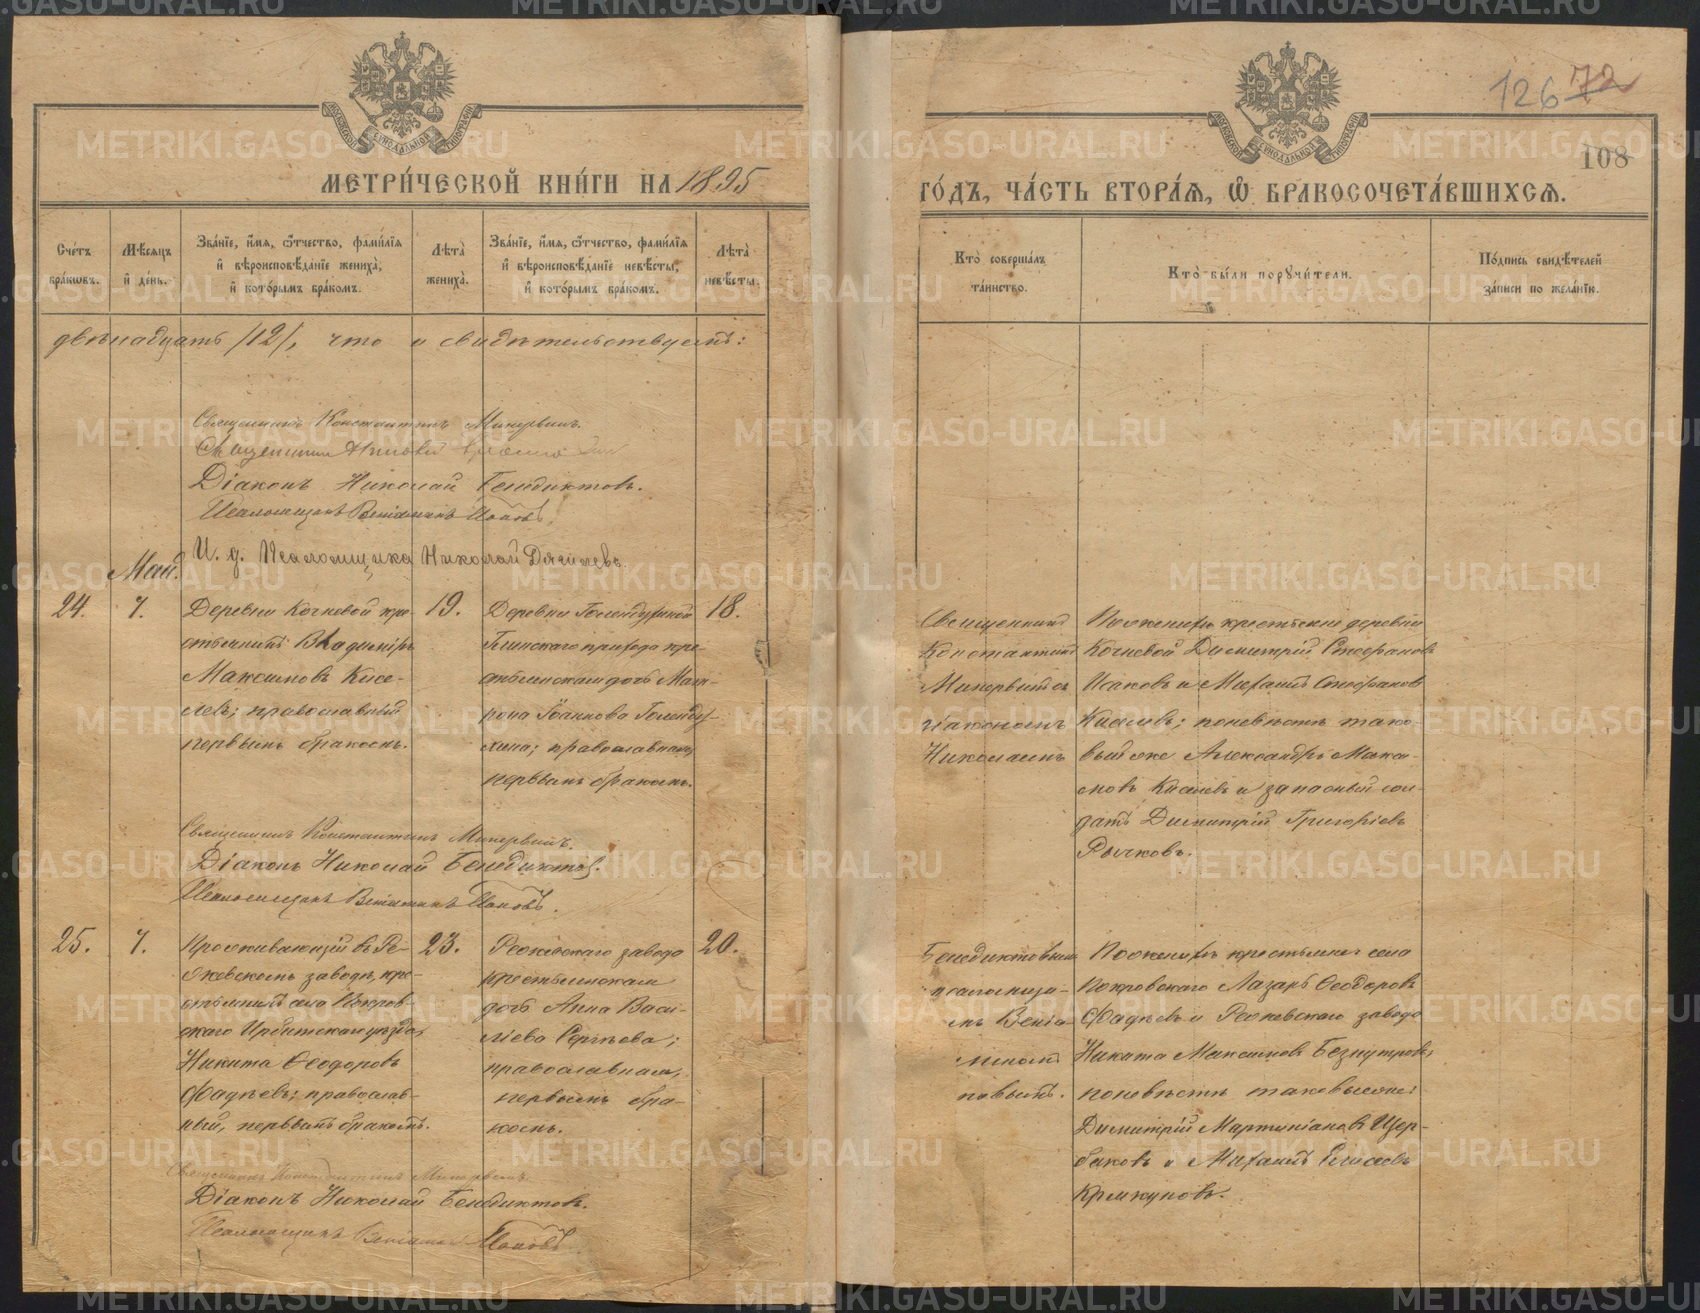 126 72
108
МЕТРИ́ЧЕСКОЙ КНИ́ГИ НА 1895
ГО́ДЪ, ЧА́СТЬ ВТОРА́Я, Ѡ БРАКОСОЧЕТА́ВШИХСЯ.
Сче́тъ бра́ковъ.
Мѣ́сяцъ и де́нь.
Зва́нїе, и́мя, ѻ́тчество, фами́лїя и вѣроисповѣ́данїе жениха̀, и кото́рымъ бра́комъ.
Лѣта̀ жениха̀.
Зва́нїе, и́мя, ѻ́тчество, фами́лїя и вѣроисповѣ́данїе невѣ́сты, и кото́рымъ бра́комъ.
Лѣта̀ невѣ́сты.
Кто̀ соверша́лъ та́инство.
Кто̀ бы́ли поручи́тели.
По́дпись свидѣ́телей за́писи по жела́нїю.
двѣнадцать /12/, что и свидѣтельствуемъ:
Священникъ Константинъ Минервинъ.
Священникъ
Діаконъ Николай Бенедиктовъ.
Псаломщикъ Веніаминъ Поповъ.
И. д. Псаломщика Николай Дягилевъ.
Май.
24.
7.
Деревни Кочневой кре-
стьянинъ Владиміръ
Максимовъ Кисе-
левъ; православный
первымъ бракомъ.
19.
Деревни Голендухиной
Глинскаго прихода кре-
стьянская дочь Мат-
рона Іоаннова Голенду-
хина; православная,
первымъ бракомъ.
18.
Священникъ
Константинъ
Минервинъ съ
діакономъ
Николаемъ
По женихѣ крестьяне деревни
Кочневой Димитрій Стефановъ
Исаковъ и Михаилъ Стефановъ
Киселевъ; по невѣстѣ тако-
вый же Александръ Макси-
мовъ Киселевъ и запасный сол-
датъ Димитрій Григоріевъ
Рычковъ.
Священникъ Константинъ Минервинъ.
Діаконъ Николай Бенедиктовъ.
Псаломщикъ Веніаминъ Поповъ.
25.
7.
Проживающій въ Ре-
жевскомъ заводѣ, кре-
стьянинъ села Покров-
скаго Ирбитскаго уѣзда,
Никита Ѳеодоровъ
Фадѣевъ; православ-
ный, первымъ бракомъ.
23.
Режевскаго завода
крестьянская
дочь Анна Васи-
ліева Сергѣева;
православная,
первымъ бра-
комъ.
20.
Бенедиктовымъ
псаломщи-
къ Веніа-
миномъ
повымъ.
По женихѣ крестьяне села
Покровскаго Лазарь Ѳеодоровъ
Фадѣевъ и Режевскаго завода
Никита Максимовъ Безнутровъ;
по невѣстѣ таковые же:
Димитрій Мартиніановъ Щер-
баковъ и Михаилъ Елисеевъ
Крякуновъ.
Священникъ Константинъ Минервинъ.
Діаконъ Николай Бенедиктовъ.
Псаломщикъ Веніаминъ Поповъ.
METRIKI.GASO-URAL.RU